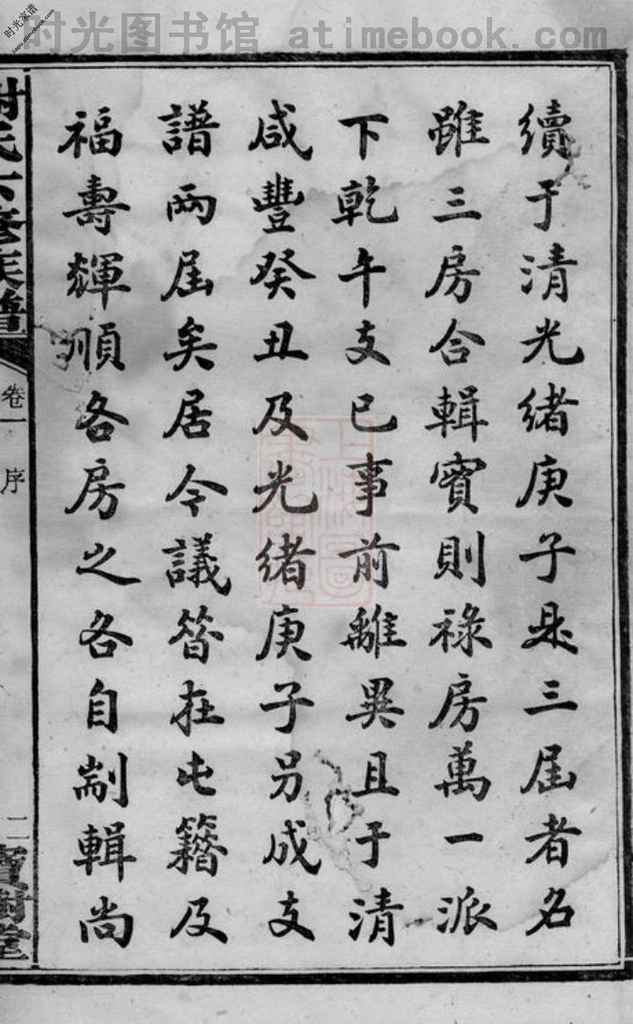 时光图书馆 atimebook.com
时光家谱
續于清光緒庚子是三屆者名
雖三房合輯實則祿房萬一派
下乾午支已事前離異且于清
咸豐癸丑及光緒庚子另成支
譜兩屆矣居今議簮在屯籍及
福壽輝順各房之各自剬輯尚
謝氏六修族譜
卷一 序
二
寶樹堂